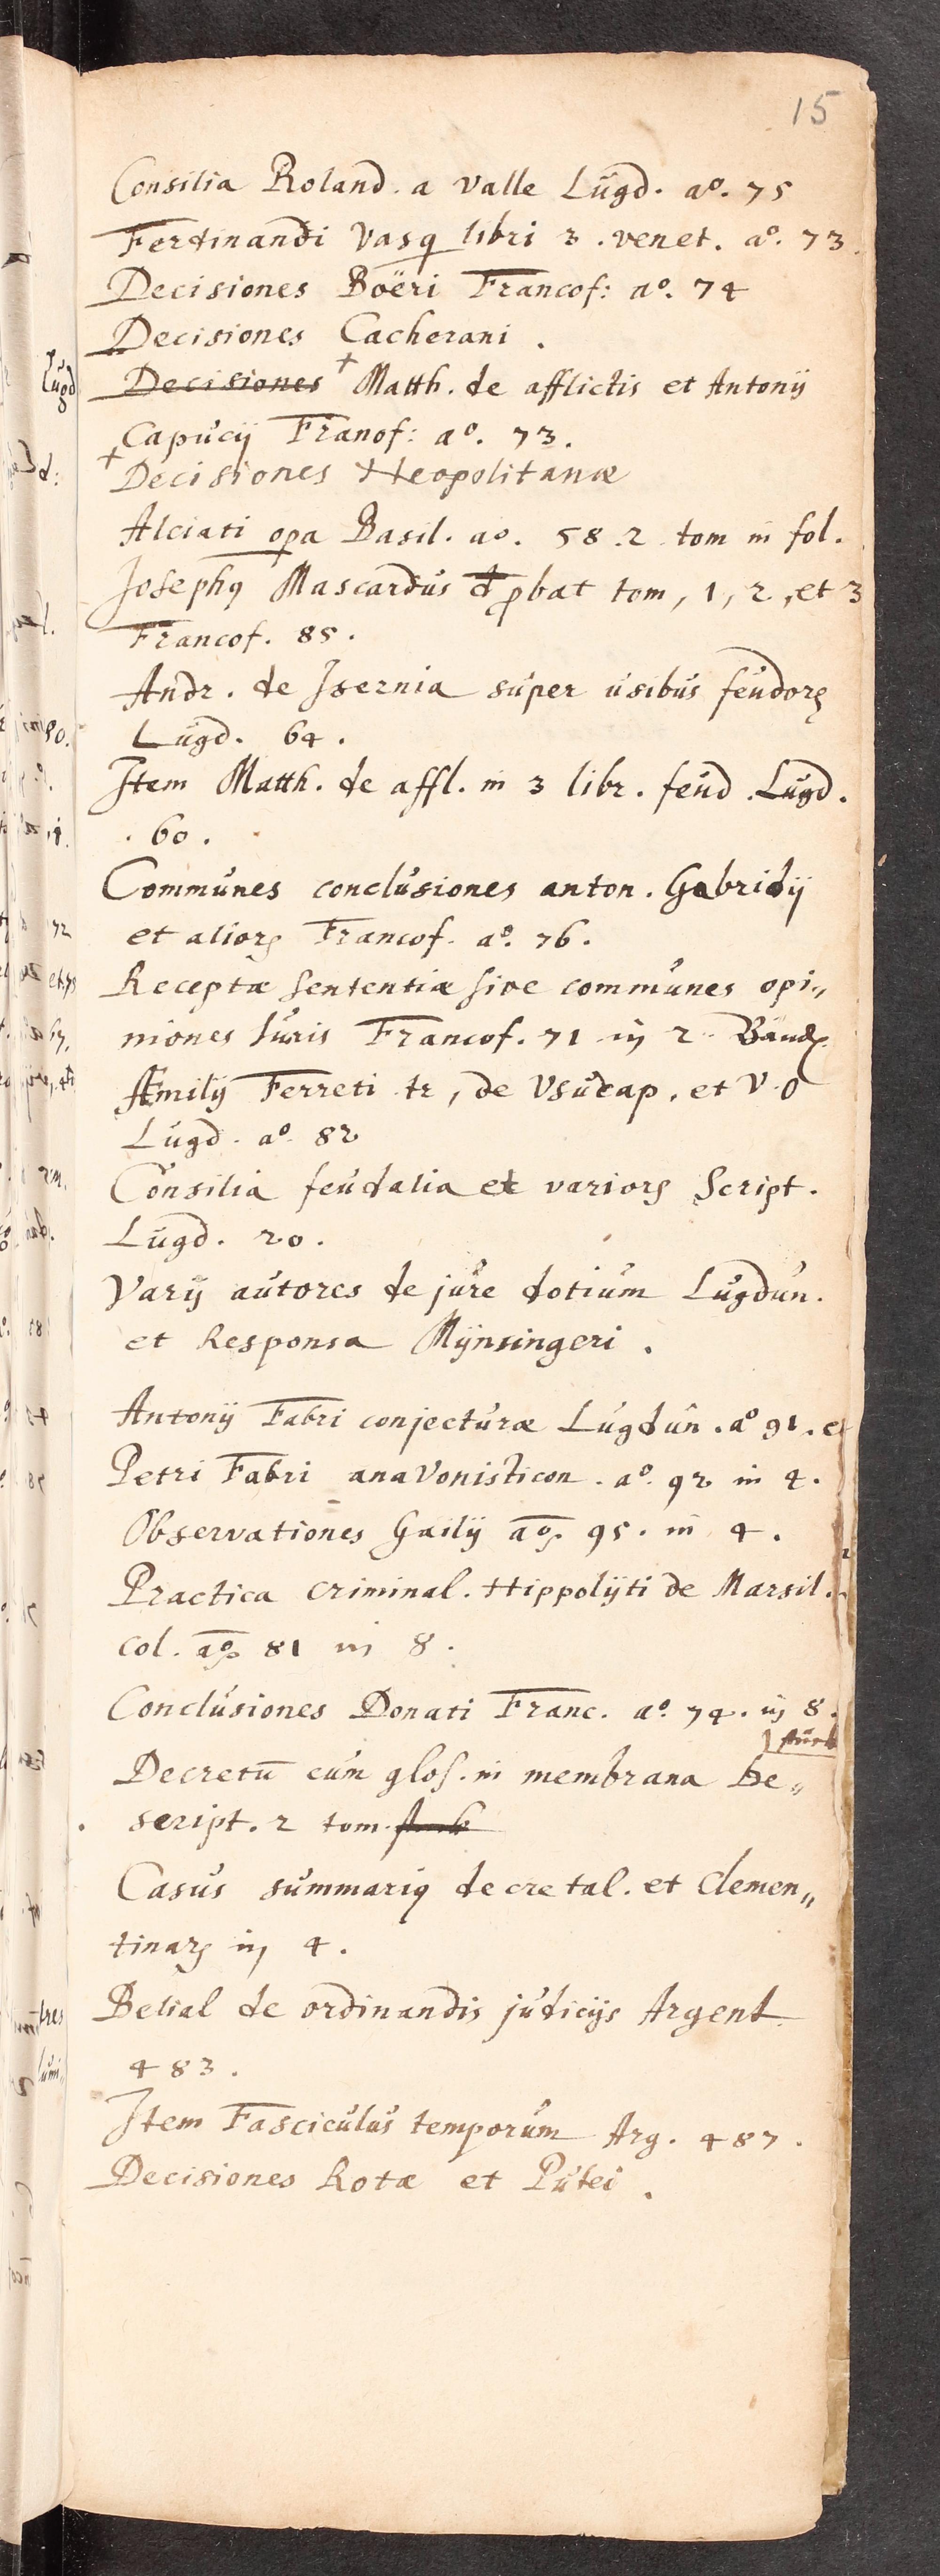 15
Consilia Roland. a Valle Lugd. ao. 75
Ferdinandi Vasq libri 3. venet. ao. 73.
Decisiones Boëri Francof: ao. 74
Decisiones Cacherani.
Decisiones + Matth. de afflictis et Antonij
Capucij Franof: ao. 73.
+ Decisiones Neopolitanæ
Alciati opa Basil. ao. 58. 2 tom in fol.
Josephq Mascardus d pbat tom, 1, 2, et 3
Francof. 85.
Andr. de Isernia super usibus feudorꝫ
Lugd. 64.
Item Matth. de affl. in 3 libr. feud. Lugd.
60.
Communes conclusiones anton. Gabridij
et aliorꝫ Francof. ao. 76.
Receptæ sententiæ sive communes opi„
niones Iuris Francof. 71 in 2 Bänd
Æmilij Ferreti tr, de Usucap. et V. O
Lugd. ao. 82
Consilia feudalia et variorꝫ Script.
Lugd. 20.
Varij autores de jure dotium Lugdun.
et Responsa Mÿnsingeri.
Antonij Fabri conjecturæ Lugdun. ao 91. et
Petri Fabri . ao. 92 in 4.
Observationes Gailij ao. 95. in 4.
Practica criminal. Hippolÿti de Marsil.
Col. ao. 81 in 8.
Conclusiones Donati Franc. ao. 74. in 8.
Decretū cum glos. in membrana De„
script. 2 tom.
Casus summariq decretal. et Clemen„
tinarꝫ in 4.
Belial de ordinandis judicijs Argent
483.
Item Fasciculus temporum Arg. 487.
Decisiones Rotæ et Putei.